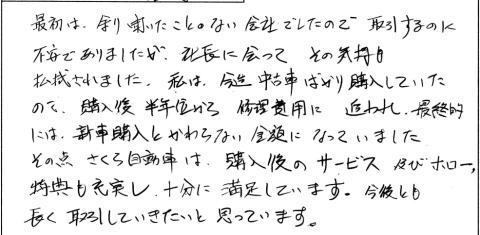 最初は、余り聞いたことのない会社でしたので取引するのに
不安でありましたが、社長に会ってその気持も
払拭されました。私は、今迄中古車ばかり購入していた
ので、購入後半年位から修理費用に追われ、最終的
には、新車購入とかわらない金額になっていました
その点さくら自動車は、購入後のサービス及びホロー,
特典も充実し、十分に満足しています。今後とも
長く取引していきたいと思っています。